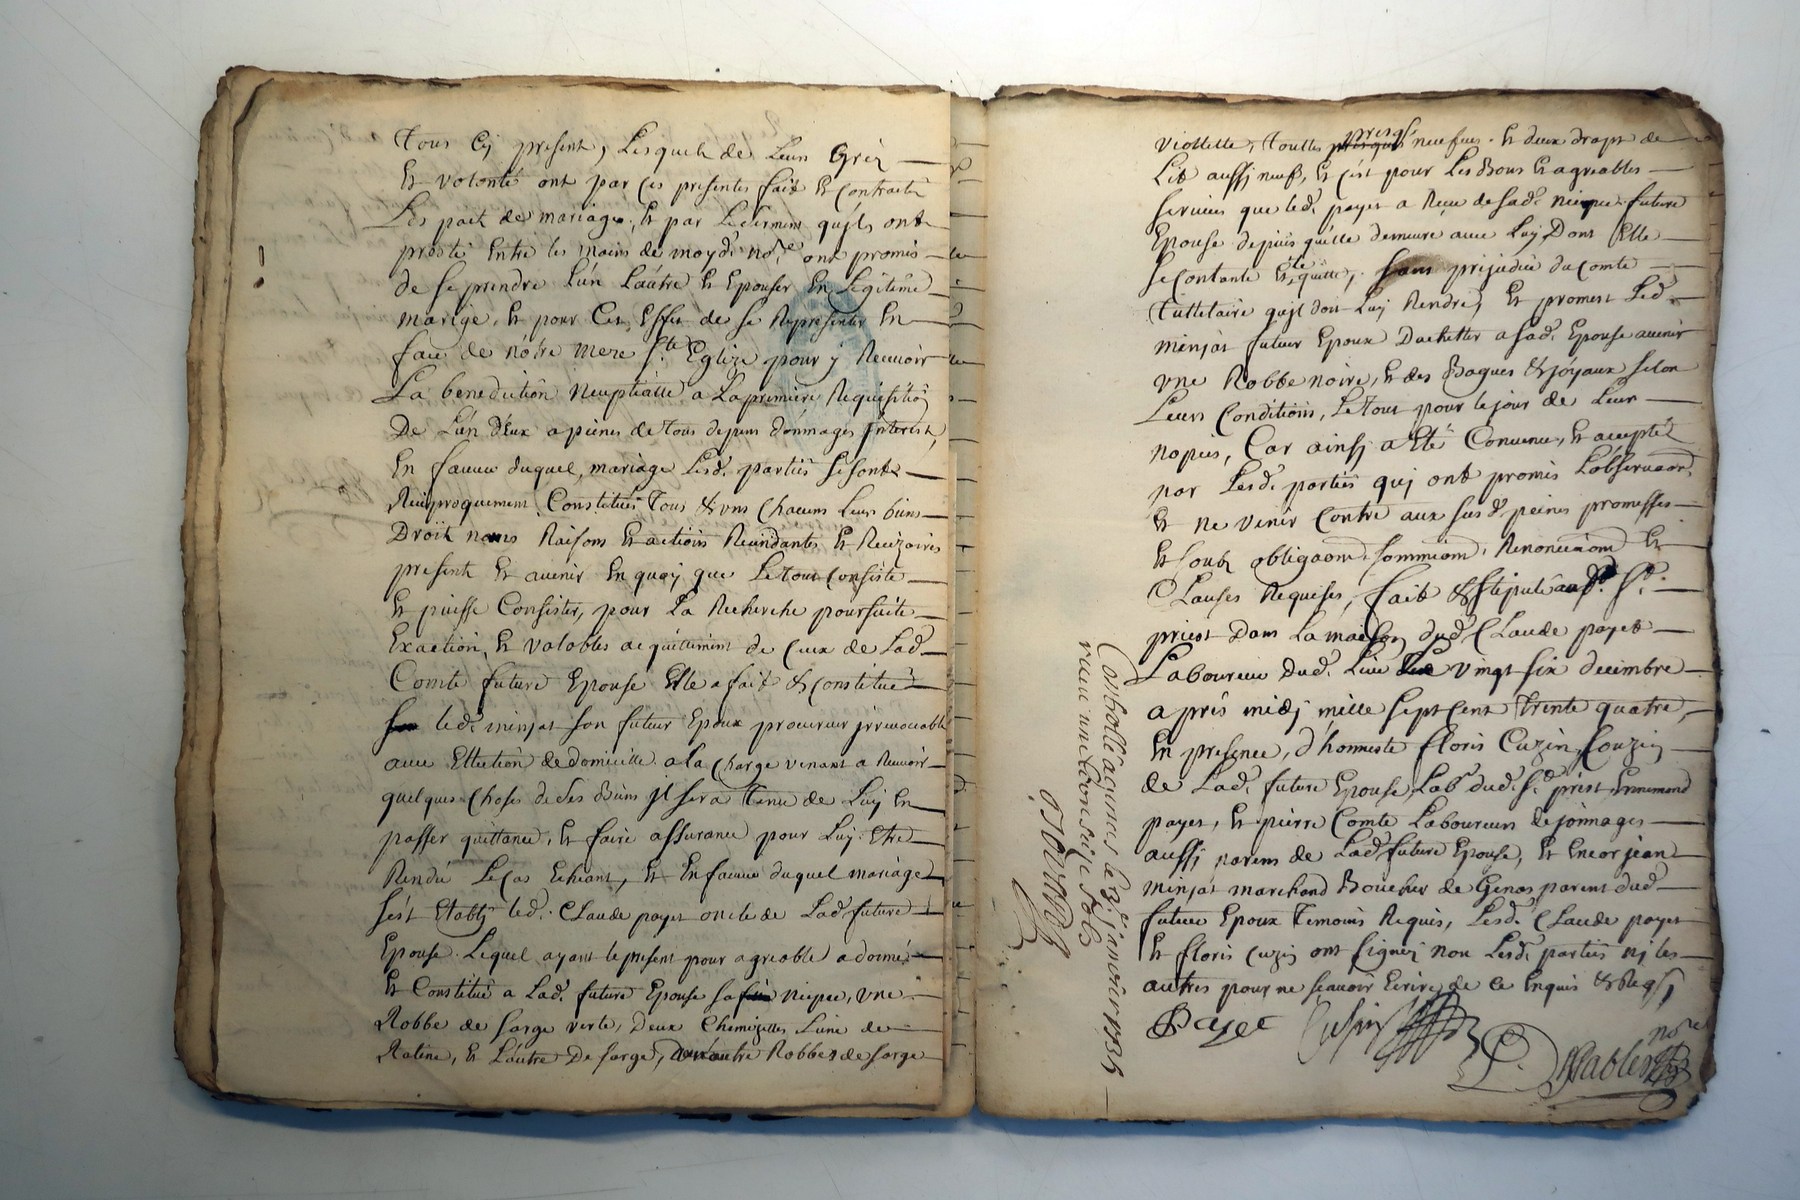 Tous Cy present, Lesquels de Leurs Gréz
Et volonté ont par Ces presentes fait Et Contracté
Les pact de mariage, Et par Leserment qujls ont
presté Entre les mains de moyd. no.re ont promis
de se prendre L'un L'autre Et Epouser En Legitime
marige, Et pour Cet Effet de se Representer En
face de nôtre mere s.te Eglize pour y Recevoir
La benediction Neuptialle a La premiere Requisition
De L'un d'Eux a peines de tous depens dommages Interest,
En faveur duquel mariage Lesd. parties se sont
Reciproquement Constitués Tous & vns Chacuns Leurs biens
Droit noms Raisons Et actions Recindantes Et Recizoires
present Et avenir En quoy que Le tout Consiste
Et puisse Consister, pour La Recherche poursuite
Exaction, Et valables acquittement de Ceux de Lad.
Comte future Epouse Elle a fait & Constitué
led. minjat son futur Epoux procureur jrrevocable
avec Ellection de domicille a la Charge venant a Recevoir
quelques Choses de Ses Biens jl sera tenu de Luy En
passer quittance, Et faire assurance pour Luy Etre
Rendu Le Cas Echeant, Et En faveur duquel mariage
s'est Etably led. Claude payet oncle de Lad. future
Epouse Lequel ayant le present pour agreable a donné
Et Constitué a Lad. future Epouse sa niepce, vne
Robbe de sarge verte, Deux Chemizettes L'une de
Ratine, Et L'autre De sarge, autre Robbe de sarge
viollette, touttes presq. neufves. Et deux draps de
Lit aussj neufs, Et c'ést pour Les Bons Et agreables
services que led. payet a Receu de sad. niepce future
Epouse depuis qu'elle demeure avec Luy Dont Elle
se Contante Et le quitte, sans prejudice du Comte
tuttelaire qujl doit Luy Rendre, Et promest Led.
minjat futur Epoux D'achetter a sad. Epouse avenir
vne Robbe noire, Et des Bagues & joyaux selon
Leurs Conditions, Le tout pour le jour de Leur
nopces, Car ainsj a Eté Convenu, Et accepté
par Lesd. parties quj ont promis L'observaon
Et ne venir Contre aux susd. peines promesses
Et soub obligaons, sommions, Renonciaons Et
Clauses Requises, fait & stipulé aud. S.t
priest Dans La maison dud. Claude payet
Laboureur Dud. Lieu Le vingt six decembre
aprés midj mille sept Cent trente quatre,
En presence, d'honneste floris Cuzin Couzin
de Lad. future Epouse, Lab.r dud. S.t priest, Ennemond
payet, Et pierre Comte Laboureurs de jonnages
aussj parens de Lad. future Epouse, Et Encor jean
minjat marchand Boucher de Genas parent dud.
future Epoux Temoins Requis, Lesd. Claude payet
Et floris Cuzin ont signéz non Lesd. parties nj les
autres pour ne scavoir Ecrire de ce Enquis & Req.s
C Payet Cusin
no.re
Controllé a le 3.e janvier 1735
receu une Livre seize sols